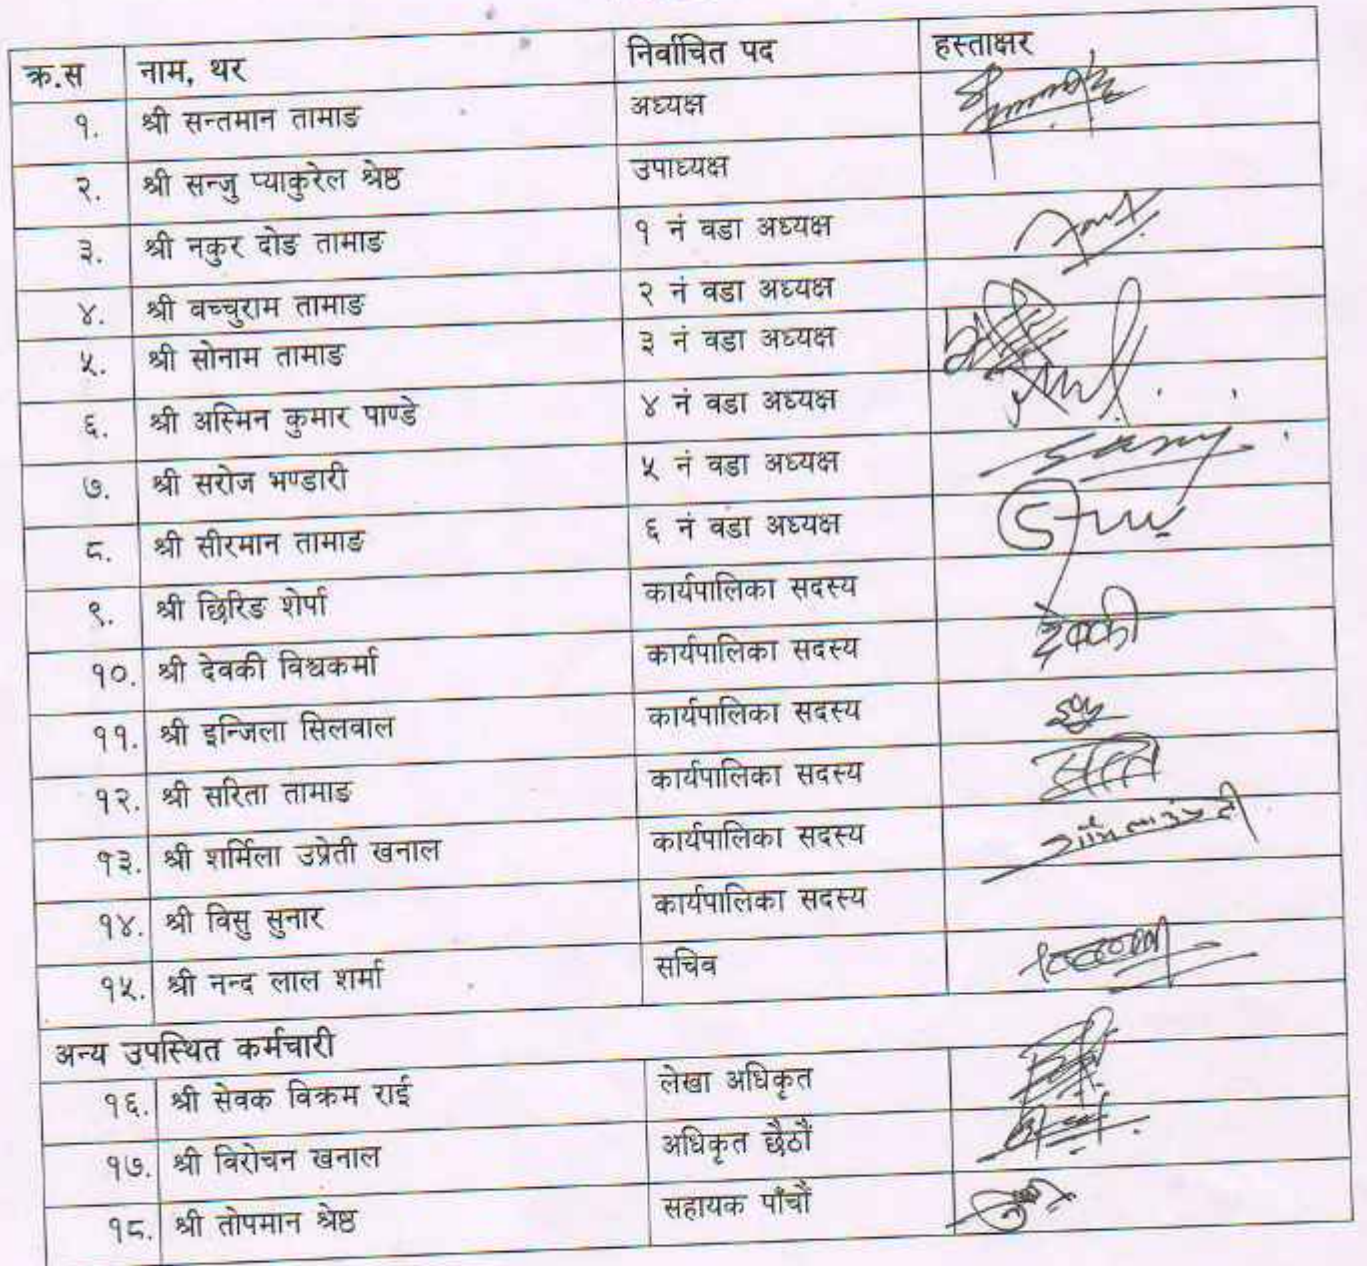 क्र.स नाम, थर निर्वाचित पद हस्ताक्षर
१. श्री सन्तमान तामाङ अध्यक्ष
२. श्री सन्जु प्याकुरेल श्रेष्ठ उपाध्यक्ष
३. श्री नकुर दोङ तामाङ १ नं वडा अध्यक्ष
४. श्री बच्चुराम तामाङ २ नं वडा अध्यक्ष
५. श्री सोनाम तामाङ ३ नं वडा अध्यक्ष
६. श्री अस्मिन कुमार पाण्डे ४ नं वडा अध्यक्ष
७. श्री सरोज भण्डारी ५ नं वडा अध्यक्ष
८. श्री सीरमान तामाङ ६ नं वडा अध्यक्ष
९. श्री छिरिङ शेर्पा कार्यपालिका सदस्य
१०. श्री देवकी विश्वकर्मा कार्यपालिका सदस्य देवकी
११. श्री इन्जिला सिलवाल कार्यपालिका सदस्य
१२. श्री सरिता तामाङ कार्यपालिका सदस्य
१३. श्री शर्मिला उप्रेती खनाल कार्यपालिका सदस्य
१४. श्री विसु सुनार कार्यपालिका सदस्य
१५. श्री नन्द लाल शर्मा सचिव
अन्य उपस्थित कर्मचारी
१६. श्री सेवक विक्रम राई लेखा अधिकृत
१७. श्री विरोचन खनाल अधिकृत छैठौं
१८. श्री तोपमान श्रेष्ठ सहायक पाँचौं